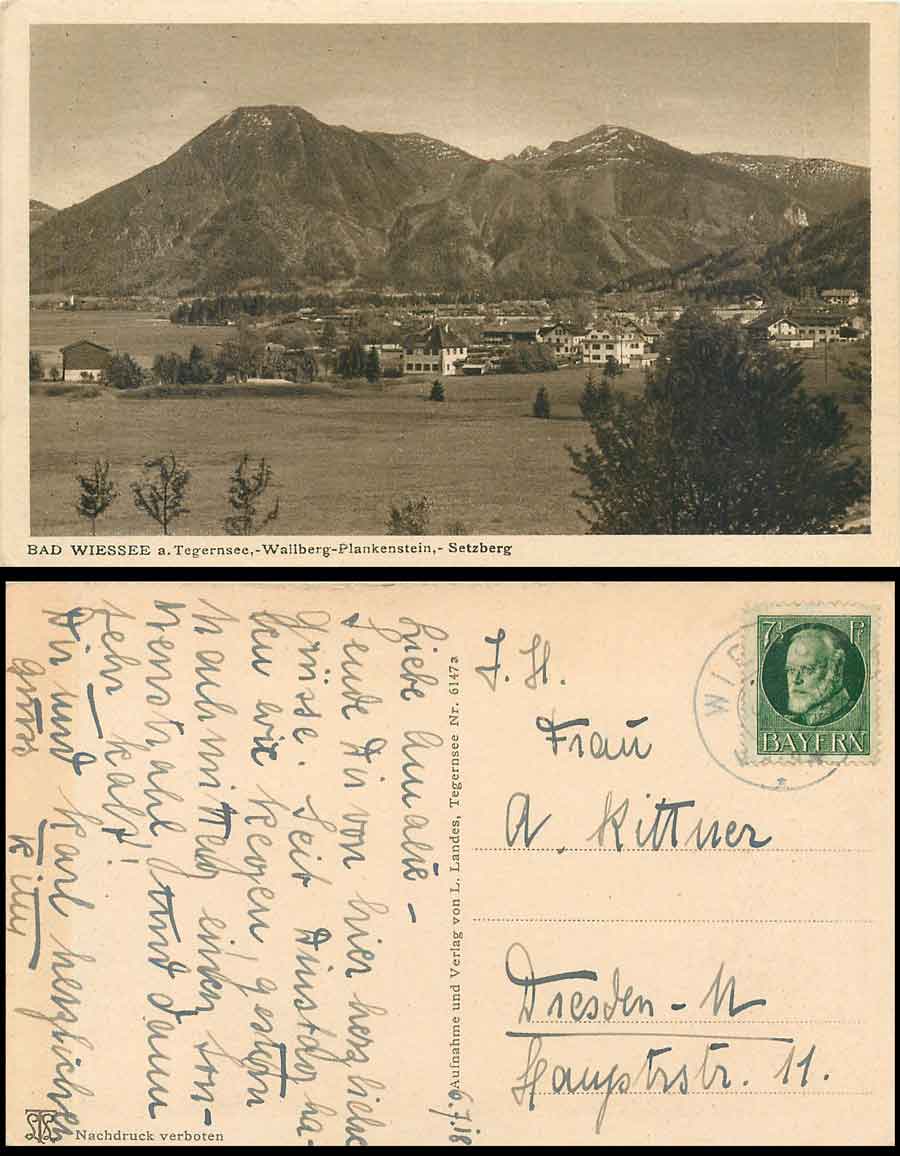 BAD WIESSEE a. Tegernsee,-Wallberg-Plankenstein,- Setzberg
Liebe Amalie -
sende Dir von hier herzliche
Grüsse. Seit Dinstag ha-
ben wir Regen, gestern
nachmittag einen Son-
nenstrahl und dann
sehr kalt!
Dir und Karl herzlichen
gruss
Kitty
6.7.18
Aufnahme und Verlag von L. Landes, Tegernsee Nr. 6147a
Nachdruck verboten
7½ Pf
BAYERN
J. H.
Frau
A. Kittner
Dresden - N
Hauptstr. 11.